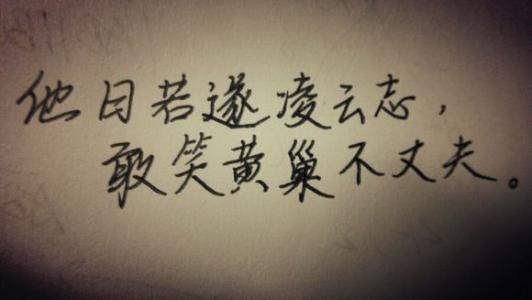 他日若遂凌云志，
敢笑黄巢不丈夫。